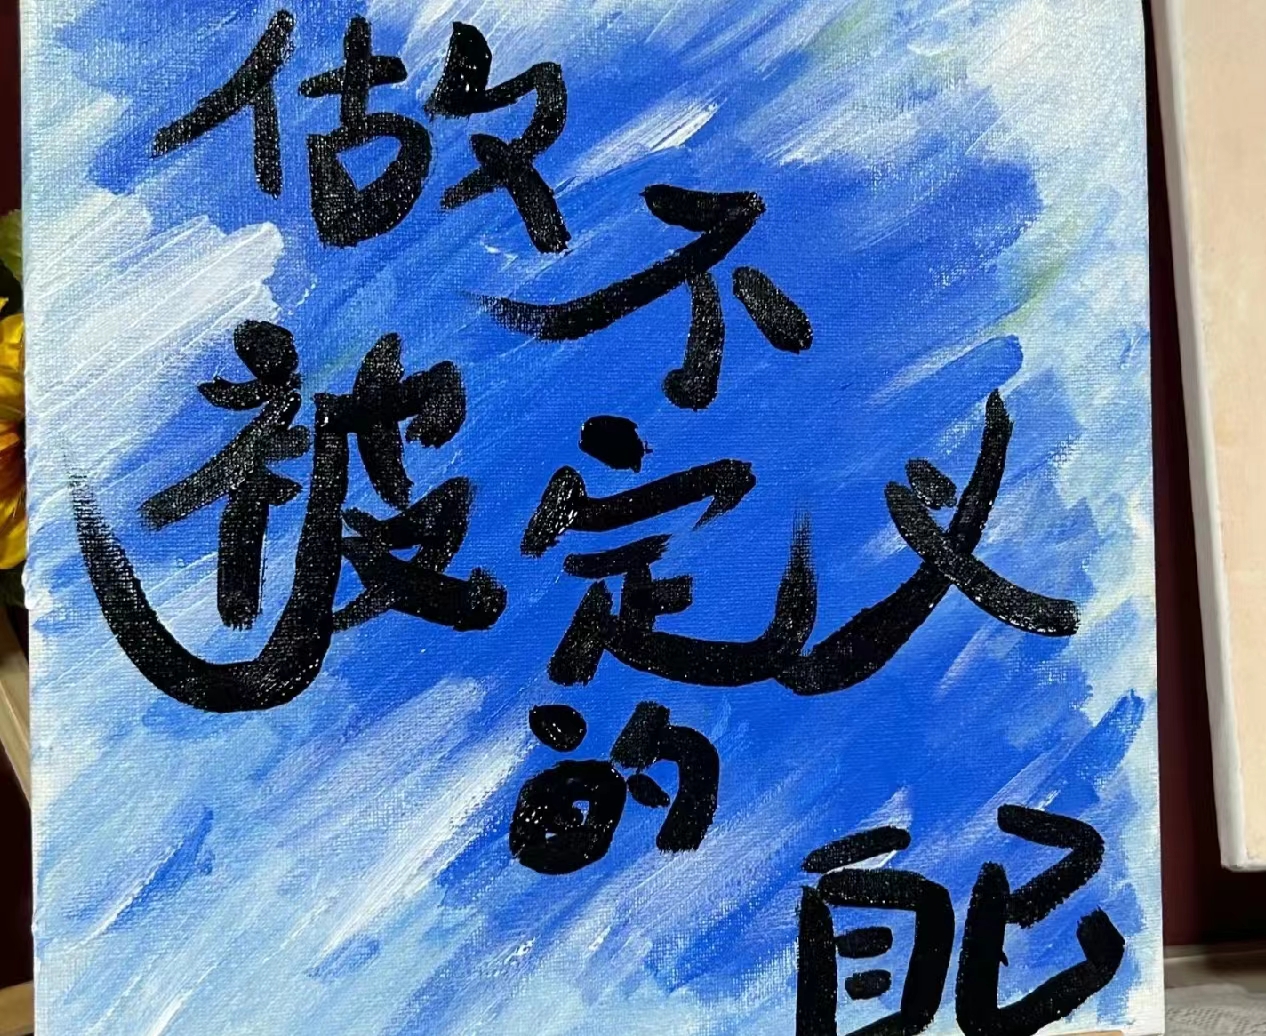 做不
被定义
的
自己